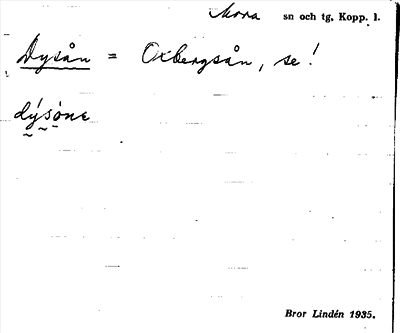 Mora sn och tg, Kopp. l.
Dysån = Oxbergsån, se!
dýsòne
Bror Lindén 1935.